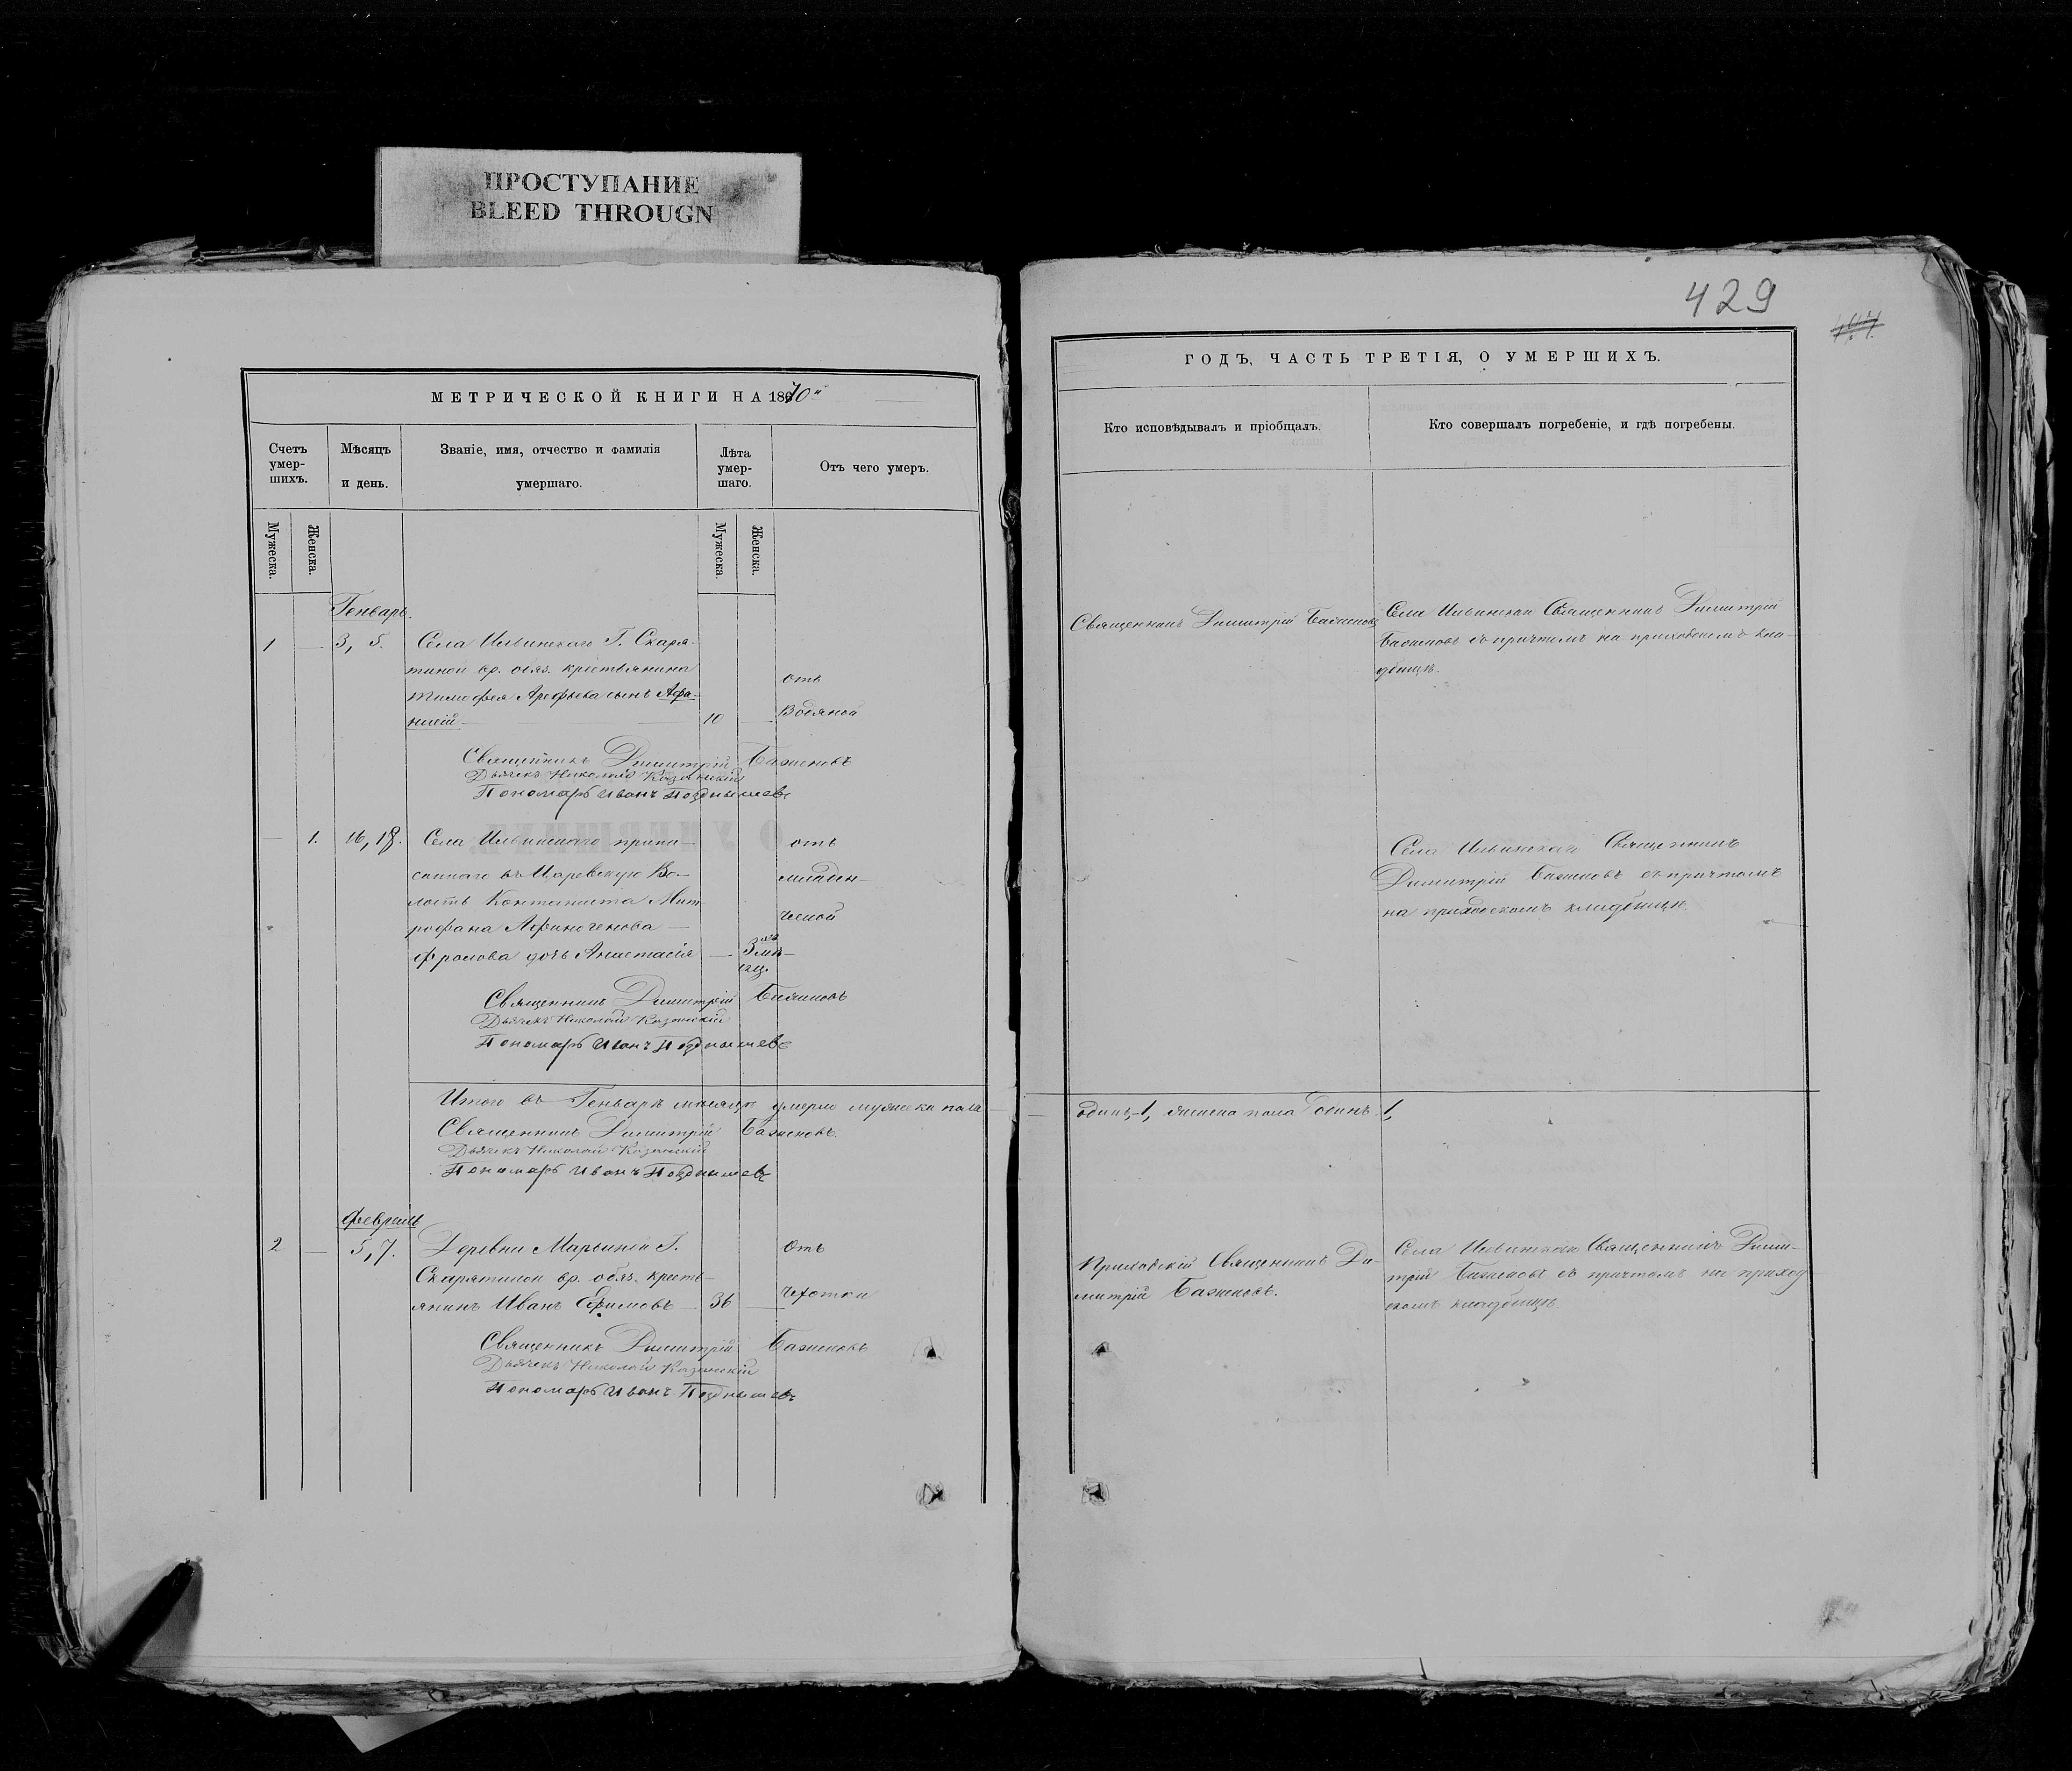 ПРОСТУПАНИЕ
BLEED THROUGN
429
МЕТРИЧЕСКОЙ КНИГИ НА 1870й
Счетъ умер-шихъ.
Мѣсяцъ и день.
Званіе, имя, отчество и фамилія умершаго.
Лѣта умер-шаго.
Отъ чего умеръ.
Мужеска.
Женска.
Мужеска.
Женска.
Генварь.
1 — 3, 5. Села Ильинскаго Г. Скаря-
тиной вр. обяз. крестьянина
Тимофея Арефьева сынъ Афа-
насій — 10 — отъ Водяной
Священникъ Димитрій Баженовъ
Дьячекъ Николай Казанскій
Пономарь Иванъ Позднышевъ
— 1. 16, 18. Села Ильинскаго припи-
саннаго въ Царевскую Во-
лость Кантониста Мит-
рофана Афиногенова
Фролова дочь Анастасія — 3 мѣ-
сяц.
отъ
младен-
ческой
Священникъ Димитрій Баженовъ
Дьячекъ Николай Казанскій
Пономарь Иванъ Позднышевъ
Итого въ Генварѣ мѣсяцѣ умерло мужеска пола
Священникъ Димитрій Баженовъ.
Дьячекъ Николай Казанскій
Пономарь Иванъ Позднышевъ
Февраль
2 — 5, 7. Деревни Марьиной Г.
Скарятиной вр. обяз. кресть-
янинъ Иванъ Ефимовъ 36 —
отъ
чахотки
Священникъ Димитрій Баженовъ
Дьячекъ Николай Казанскій
Пономарь Иванъ Позднышевъ
ГОДЪ, ЧАСТЬ ТРЕТІЯ, О УМЕРШИХЪ.
Кто исповѣдывалъ и пріобщалъ.
Кто совершалъ погребеніе, и гдѣ погребены.
Священникъ Димитрій Баженовъ
Села Ильинскаго Священникъ Димитрій
Баженовъ съ причтомъ на приходскомъ кла-
дбищѣ.
Села Ильинскаго Священникъ
Димитрій Баженовъ съ причтомъ
на приходскомъ кладбищѣ.
одинъ-1, женска пола одинъ 1,
Приходскій Священникъ Ди-
митрій Баженовъ.
Села Ильинскаго Священникъ Дими-
трій Баженовъ съ причтомъ на приход
скомъ кладбищѣ.